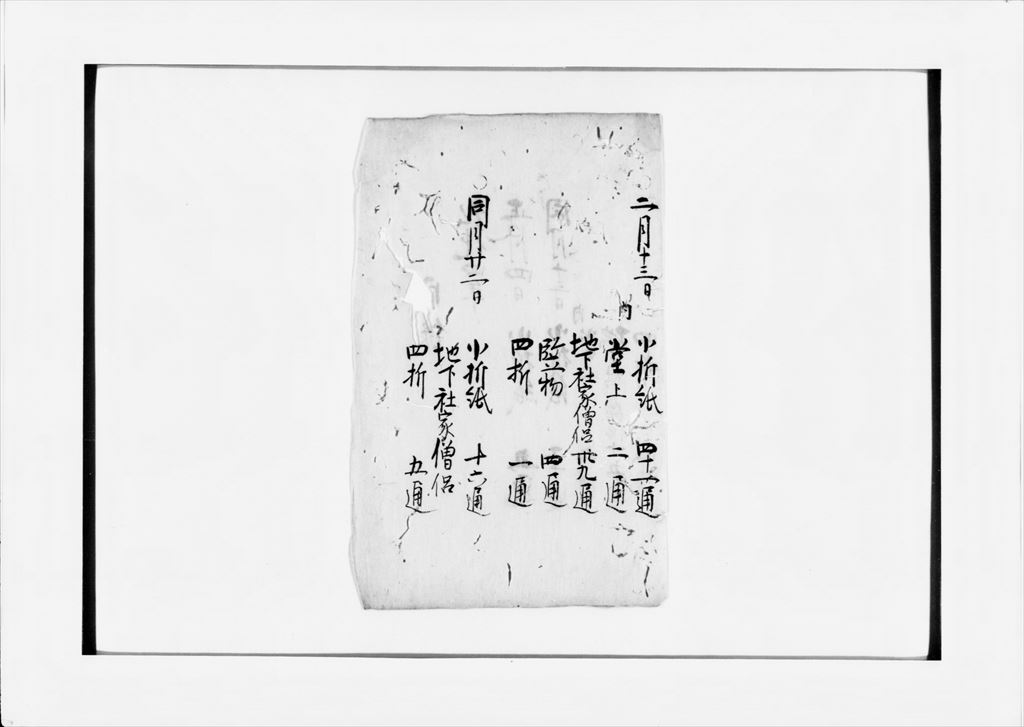 二月十三日
内
小折紙 四十一通
堂上 二通
地下社家僧侶 卅九通
監物 四通
四折 一通
同月廿二日
小折紙 十六通
地下社家僧侶
四折 五通